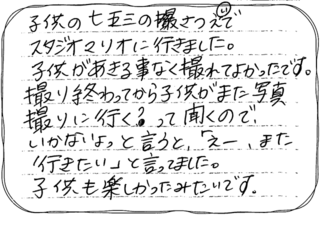 子供の七五三の撮さつえで
スタジオマリオに行きました。
子供があきる事なく撮れてよかったです。
撮り終わってから子供がまた写真
撮りに行く？って聞くので、
いかないよっと言うと、「えー、また
行きたい」と言ってました。
子供も楽しかったみたいです。